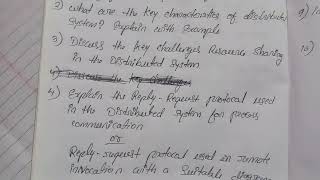 2) what are the key characteristics of distributed
System? Explain with Example
3) Discuss the key challenges Resource sharing
in the Distributed system
4) Discuss the key challenges
4) Explain the Reply-Request protocol used
in the Distributed system for process
communication
or
Reply-request protocol used in remote
invocation with a suitable diagram
9)
10)